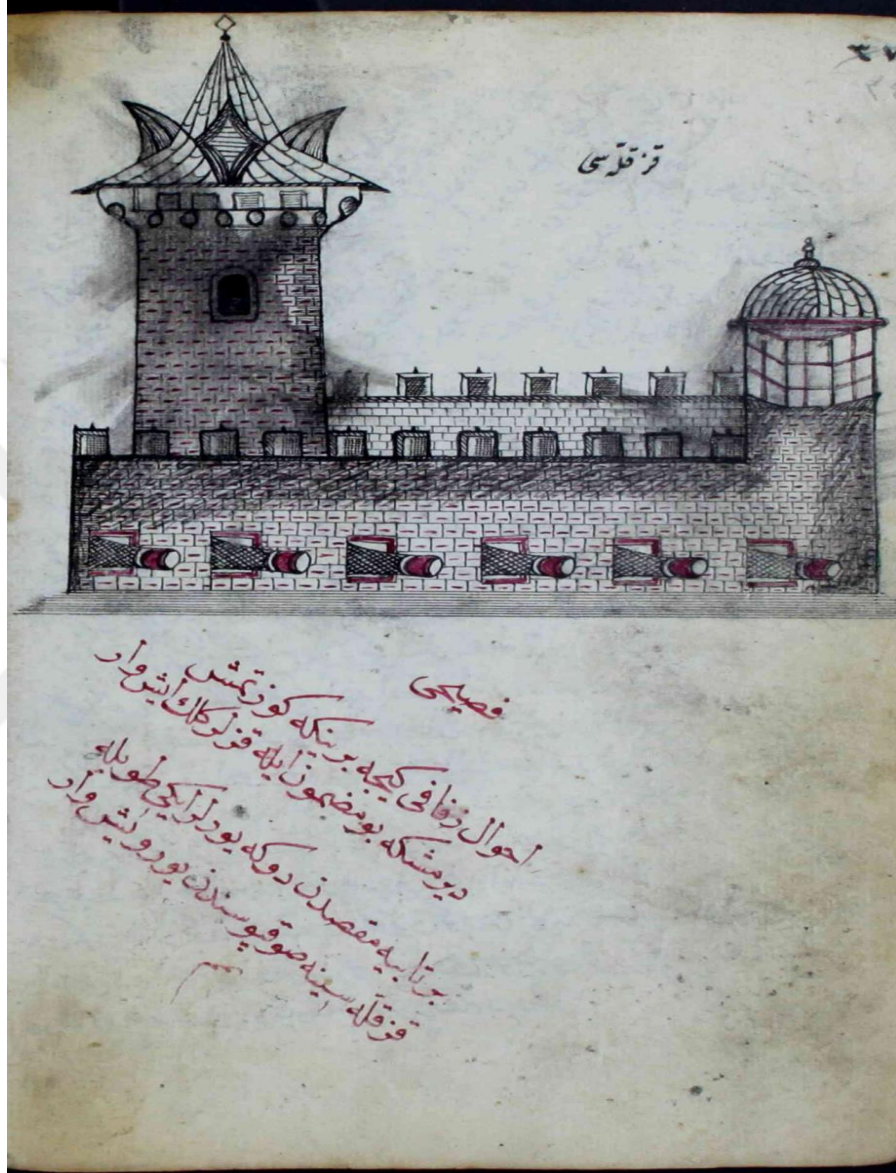 ٣٧
قز قلّه سی
فصیحی
احوال زفافی کیجه بر ینکه کوزتمش
دیرمشکه بو مضمون ایله قزلر کلك ایش وار
بر تابیه مقصدن دوکه یورلر ایکی طوپله
قز قلّه سینه صو قپوسندن یورویش وار